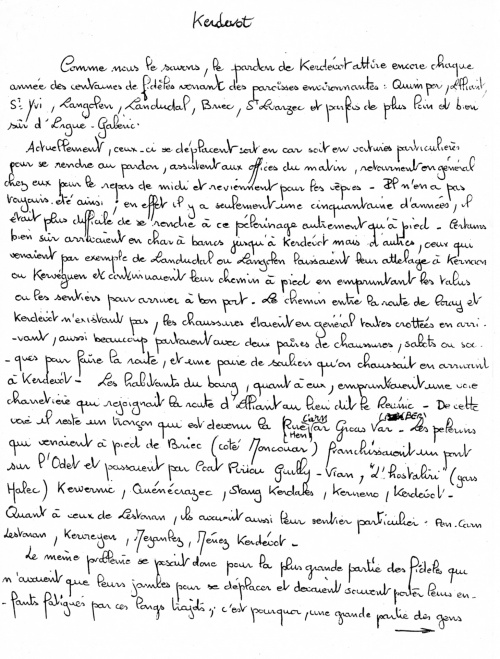 Kerdevot
Comme nous le savons, le pardon de Kerdévot attire encore chaque
année des centaines de fidèles venant des paroisses environnantes : Quimper, Elliant,
St Yvi, Langolen, Landudal, Briec, St Evarzec et parfois de plus loin et bien
sûr d'Ergué-Gabéric.
Actuellement, ceux-ci se déplacent soit en car soit en voitures particulières
pour se rendre au pardon, assistent aux offices du matin, retournent en général
chez eux pour le repas de midi et reviennent pour les vêpres - Il n'en a pas
toujours été ainsi : en effet il y a seulement une cinquantaine d'années, il
était plus difficile de se rendre à ce pèlerinage autrement qu'à pied - Certains
bien sûr arrivaient en char à bancs jusqu'à Kerdévot mais d'autres, ceux qui
venaient par exemple de Landudal ou Langolen laissaient leur attelage à
ou Kervéguen et continuaient leur chemin à pied en empruntant les talus
ou les sentiers pour arriver à bon port - Le chemin entre la route de Coray et
Kerdévot n'existant pas, les chaussures étaient en général toutes crottées en arri-
-vant, aussi beaucoup partaient avec deux paires de chaussures, sabots ou soc-
-ques pour faire la route, et une paire de souliers qu'on chaussait en arrivant
à Kerdévot - Les habitants du bourg, quant à eux, empruntaient une voie
charretière qui rejoignait la route d'Elliant au lieu dit le Reunic - De cette
voie il reste un tronçon qui est devenu la Rue - Les pèlerins
qui venaient à pied de Briec (côté Moncouar) franchissaient un pont
sur l'Odet et passaient par Coat Piriou Guilly-Vian, "L'hostaliri" (gars
Halec) Kewernic, Quénécrazec, Stang Kerdalès, Kerneno, Kerdévot -
Quant à ceux de Lestonan, ils avaient aussi leur sentier particulier : Pen Carn
Lestonan, Kervreyen, Meyanlez, Ménez Kerdévot -
Le même problème se posait donc pour la plus grande partie des fidèles qui
n'avaient que leurs jambes pour se déplacer et devaient souvent porter leurs en-
-fants fatigués par ces longs trajets ; c'est pourquoi, une grande partie des gens